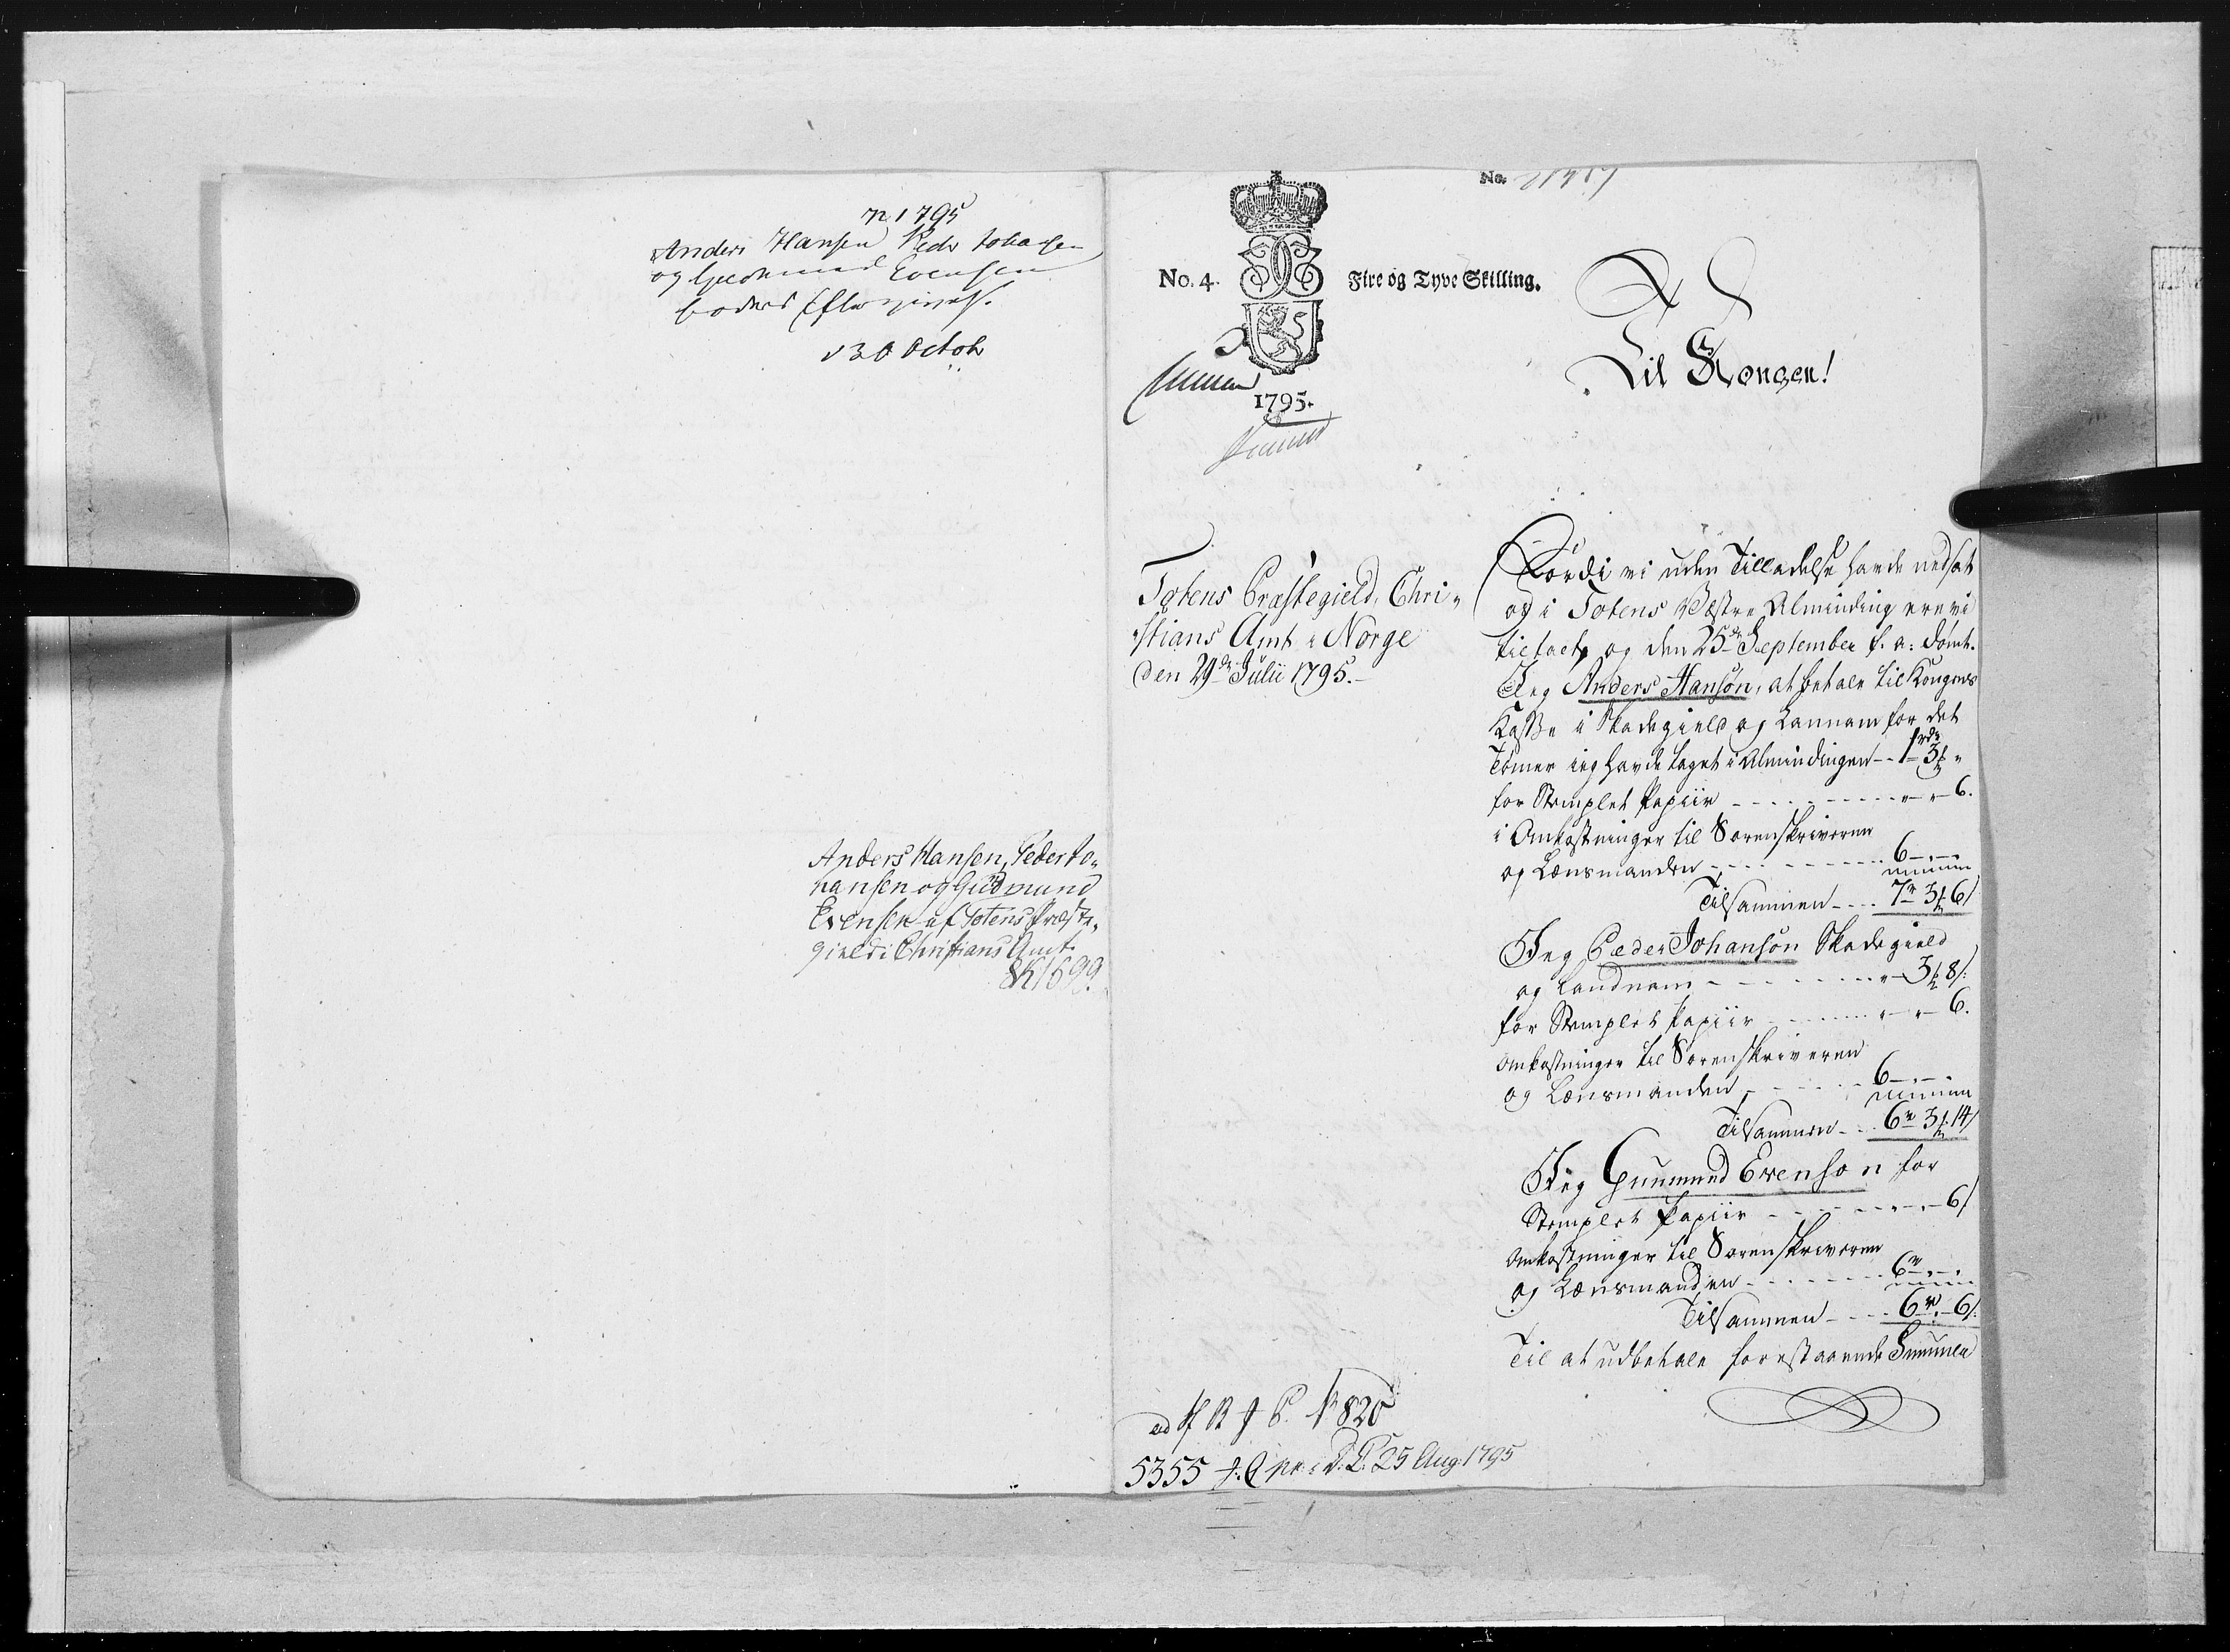 n 1795
Anders Hansen Peder Johansen
og Gudmund Evensen
bøders Eftergivelse.
d 30 Octob
Anders Hansen, Peder Jo-
hansen og Gudmund
Evensen af Totens Præste-
gield i Christians Amt.
1699.
No.
No. 4. Fire og Tyve Skilling.
1795.
Til Kongen!
Totens Præstegield, Chri-
stians Amt i Norge
den 29de Julii 1795.
Fordi vi uden Tilladelse havde nedsat
os i Totens Westre Alminding ere vi
tiltalt, og den 25de September f. a: dømt.
Jeg Anders Hansøn, at betale til Kongens
Kasse i Skadegield og Lannam for det
Tømer jeg havde taget i Almindingen - 1 rdr 3
for Stemplet Papiir - - - 6.
i Omkostninger til Sorenskriveren
og Lænsmanden - - - 6 - -
Tilsammen - - - 7 r 3 6
Jeg Peder Johansøn Skadegield
og Landnam - - - 3 8
for Stemplet Papiir - - - 6.
Omkostninger til Sorenskriveren
og Lænsmanden - - - 6 - -
Tilsammen - - 6 r 3 14
Jeg Guumund Evensøn for
Stemplet Papiir - - - 6
Omkostninger til Sorenskriveren
og Lænsmanden - - - 6 r
Tilsammen - - - 6 r - 6
Til at udbetale forestaaende Summer
ad N 820
5355 25 Aug: 1795